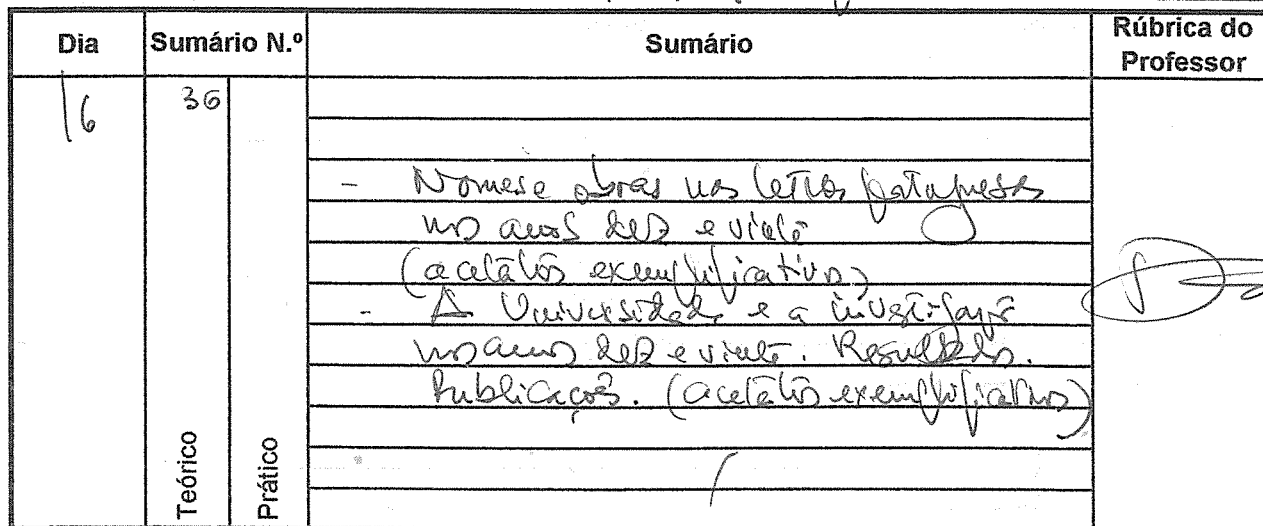 Dia Sumário N.º Sumário Rúbrica do Professor
16 36
- Nomes e obras nas letras portuguesas
nos anos dez e vinte
(acetatos exemplificativos)
- A Universidade e a investigação
nos anos dez e vinte. Resultados.
Publicações. (acetatos exemplificativos)
Teórico Prático